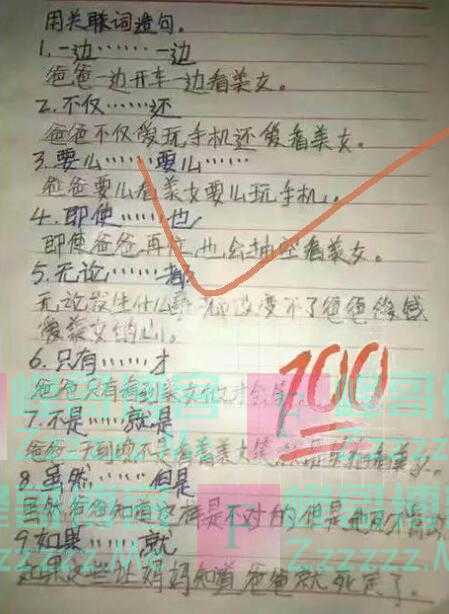 用关联词造句。
1.一边……一边
爸爸一边开车一边看美女。
2.不仅……还
爸爸不仅爱玩手机还爱看美女。
3.要么……要么……
爸爸要么看美女要么玩手机。
4.即使……也
即使爸爸再忙,也会抽空看美女。
5.无论……都
无论发生什么 都改变不了爸爸
爱美女的心。
6.只有……才
爸爸只有看到美女他才会
100
7.不是……就是
爸爸一天到晚不是看着美女笑,
8.虽然……但是
虽然爸爸知道这样是不对的,但是他
9.如果……就
如果这些让妈妈知道,爸爸就死定了。
Zzzzzz.Me